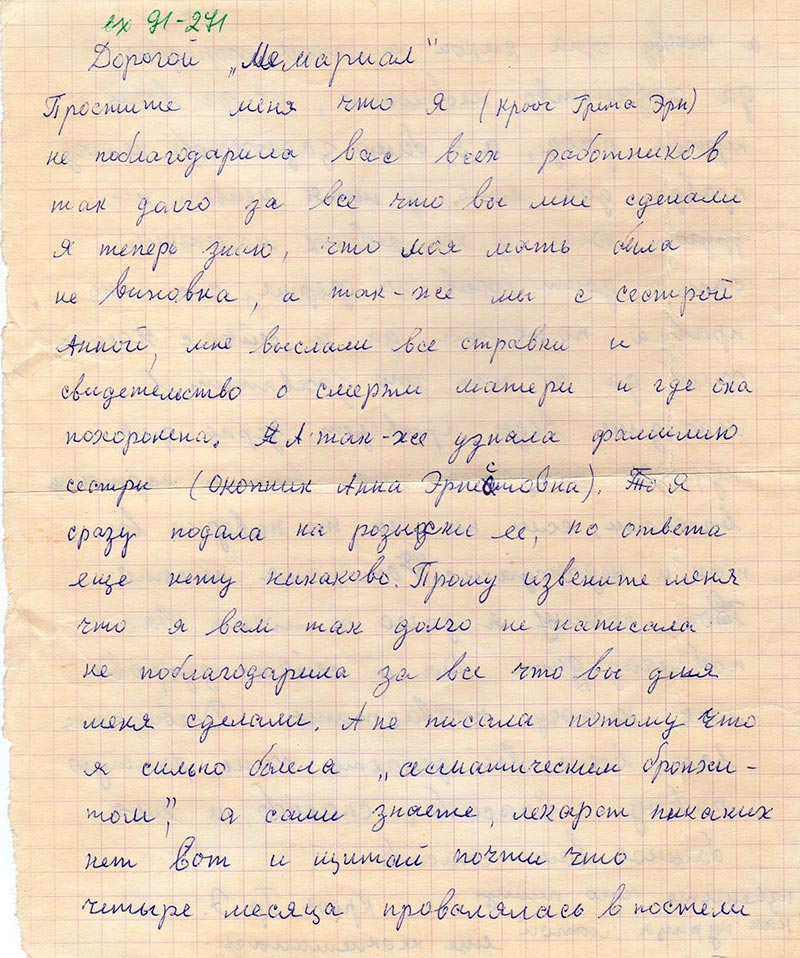 вх 91-271
Дорогой „Мемариал"
Простите меня что я (Кроог Грета Эрн)
не поблагодарила вас всех работников
так долго за все что вы мне сделали
я теперь знаю, что моя мать была
не виновна, а так-же мы с сестрой
Анной, мне выслали все стравки и
свидетельство о смерти матери и где она
похоронена. А так-же узнала фамилию
сестры (Окопник Анна Эрнесмовна). То я
сразу подала на розыски ее, но ответа
еще нету никаково. Прошу извените меня
что я вам так долго не написала
не поблагодарила за все что вы для
меня сделали. А не писала потому что
я сильно болела „асматическим бронхи-
том", а сами знаете, лекарст никаких
нет Вот и щитай почти что
четыре месяца провалялась в постели